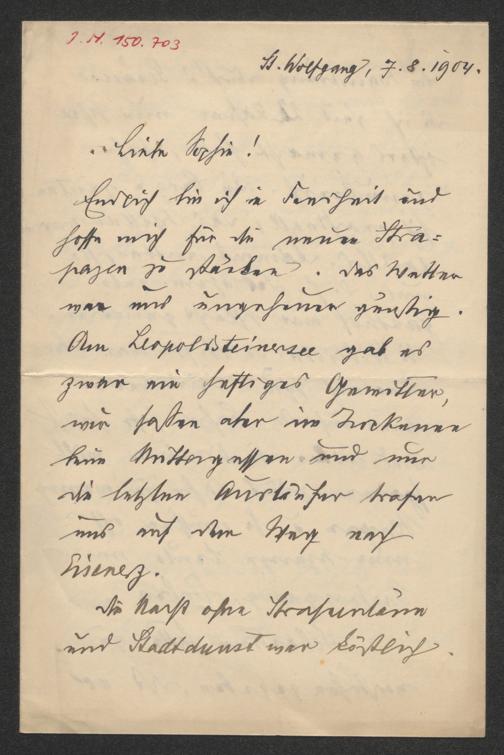 J. N. 150.703
St. Wolfgang, 7.8.1904.
Liebe Sophie!
Endlich bin ich in Freiheit und
hoffe mich für die neuen Stra=
pazen zu stärken. Das Wetter
war uns ungeheuer günstig.
Am Leopoldsteinersee gab es
zwar ein heftiges Gewitter,
wir saßen aber im Trockenen
beim Mittagessen und nur
die letzten Ausläufer trafen
uns auf dem Weg nach
Eisenerz.
Die Nacht ohne Straßenlärm
und Stadtdunst war köstlich.